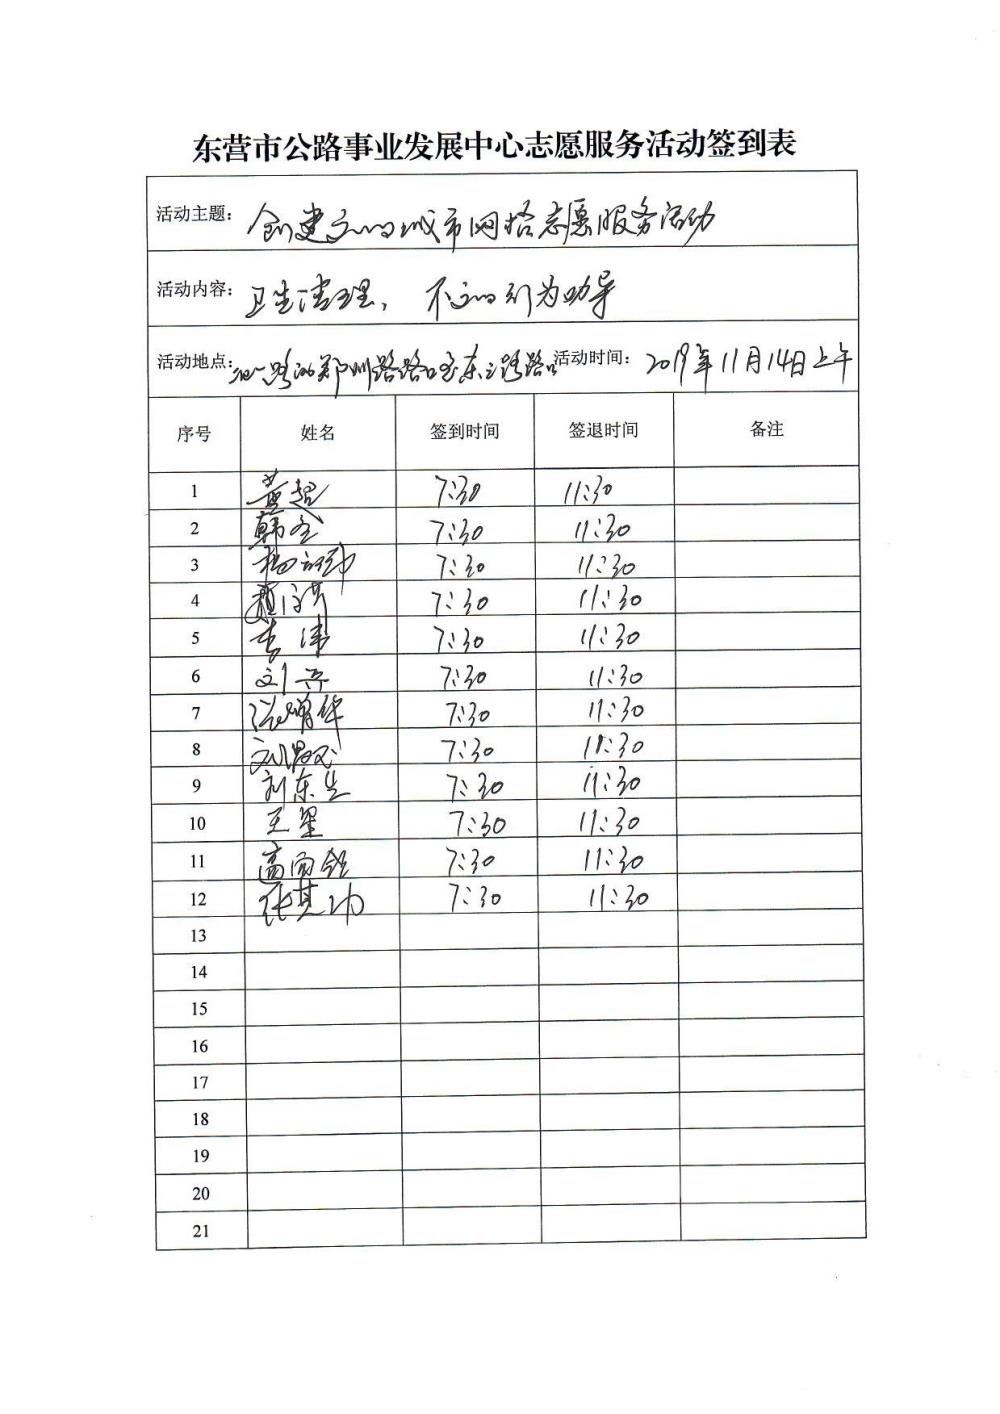 东营市公路事业发展中心志愿服务活动签到表
活动主题: 创建文明城市网格志愿服务活动
活动内容: 卫生清理, 不文明行为劝导
活动地点: 郑州路路口至东三路路口 活动时间: 2019年11月14日上午
序号 姓名 签到时间 签退时间 备注
1 黄超 7:30 11:30
2 韩全 7:30 11:30
3 7:30 11:30
4 7:30 11:30
5 李伟 7:30 11:30
6 刘兵 7:30 11:30
7 7:30 11:30
8 7:30 11:30
9 刘东生 7:30 11:30
10 王星 7:30 11:30
11 7:30 11:30
12 张其功 7:30 11:30
13
14
15
16
17
18
19
20
21